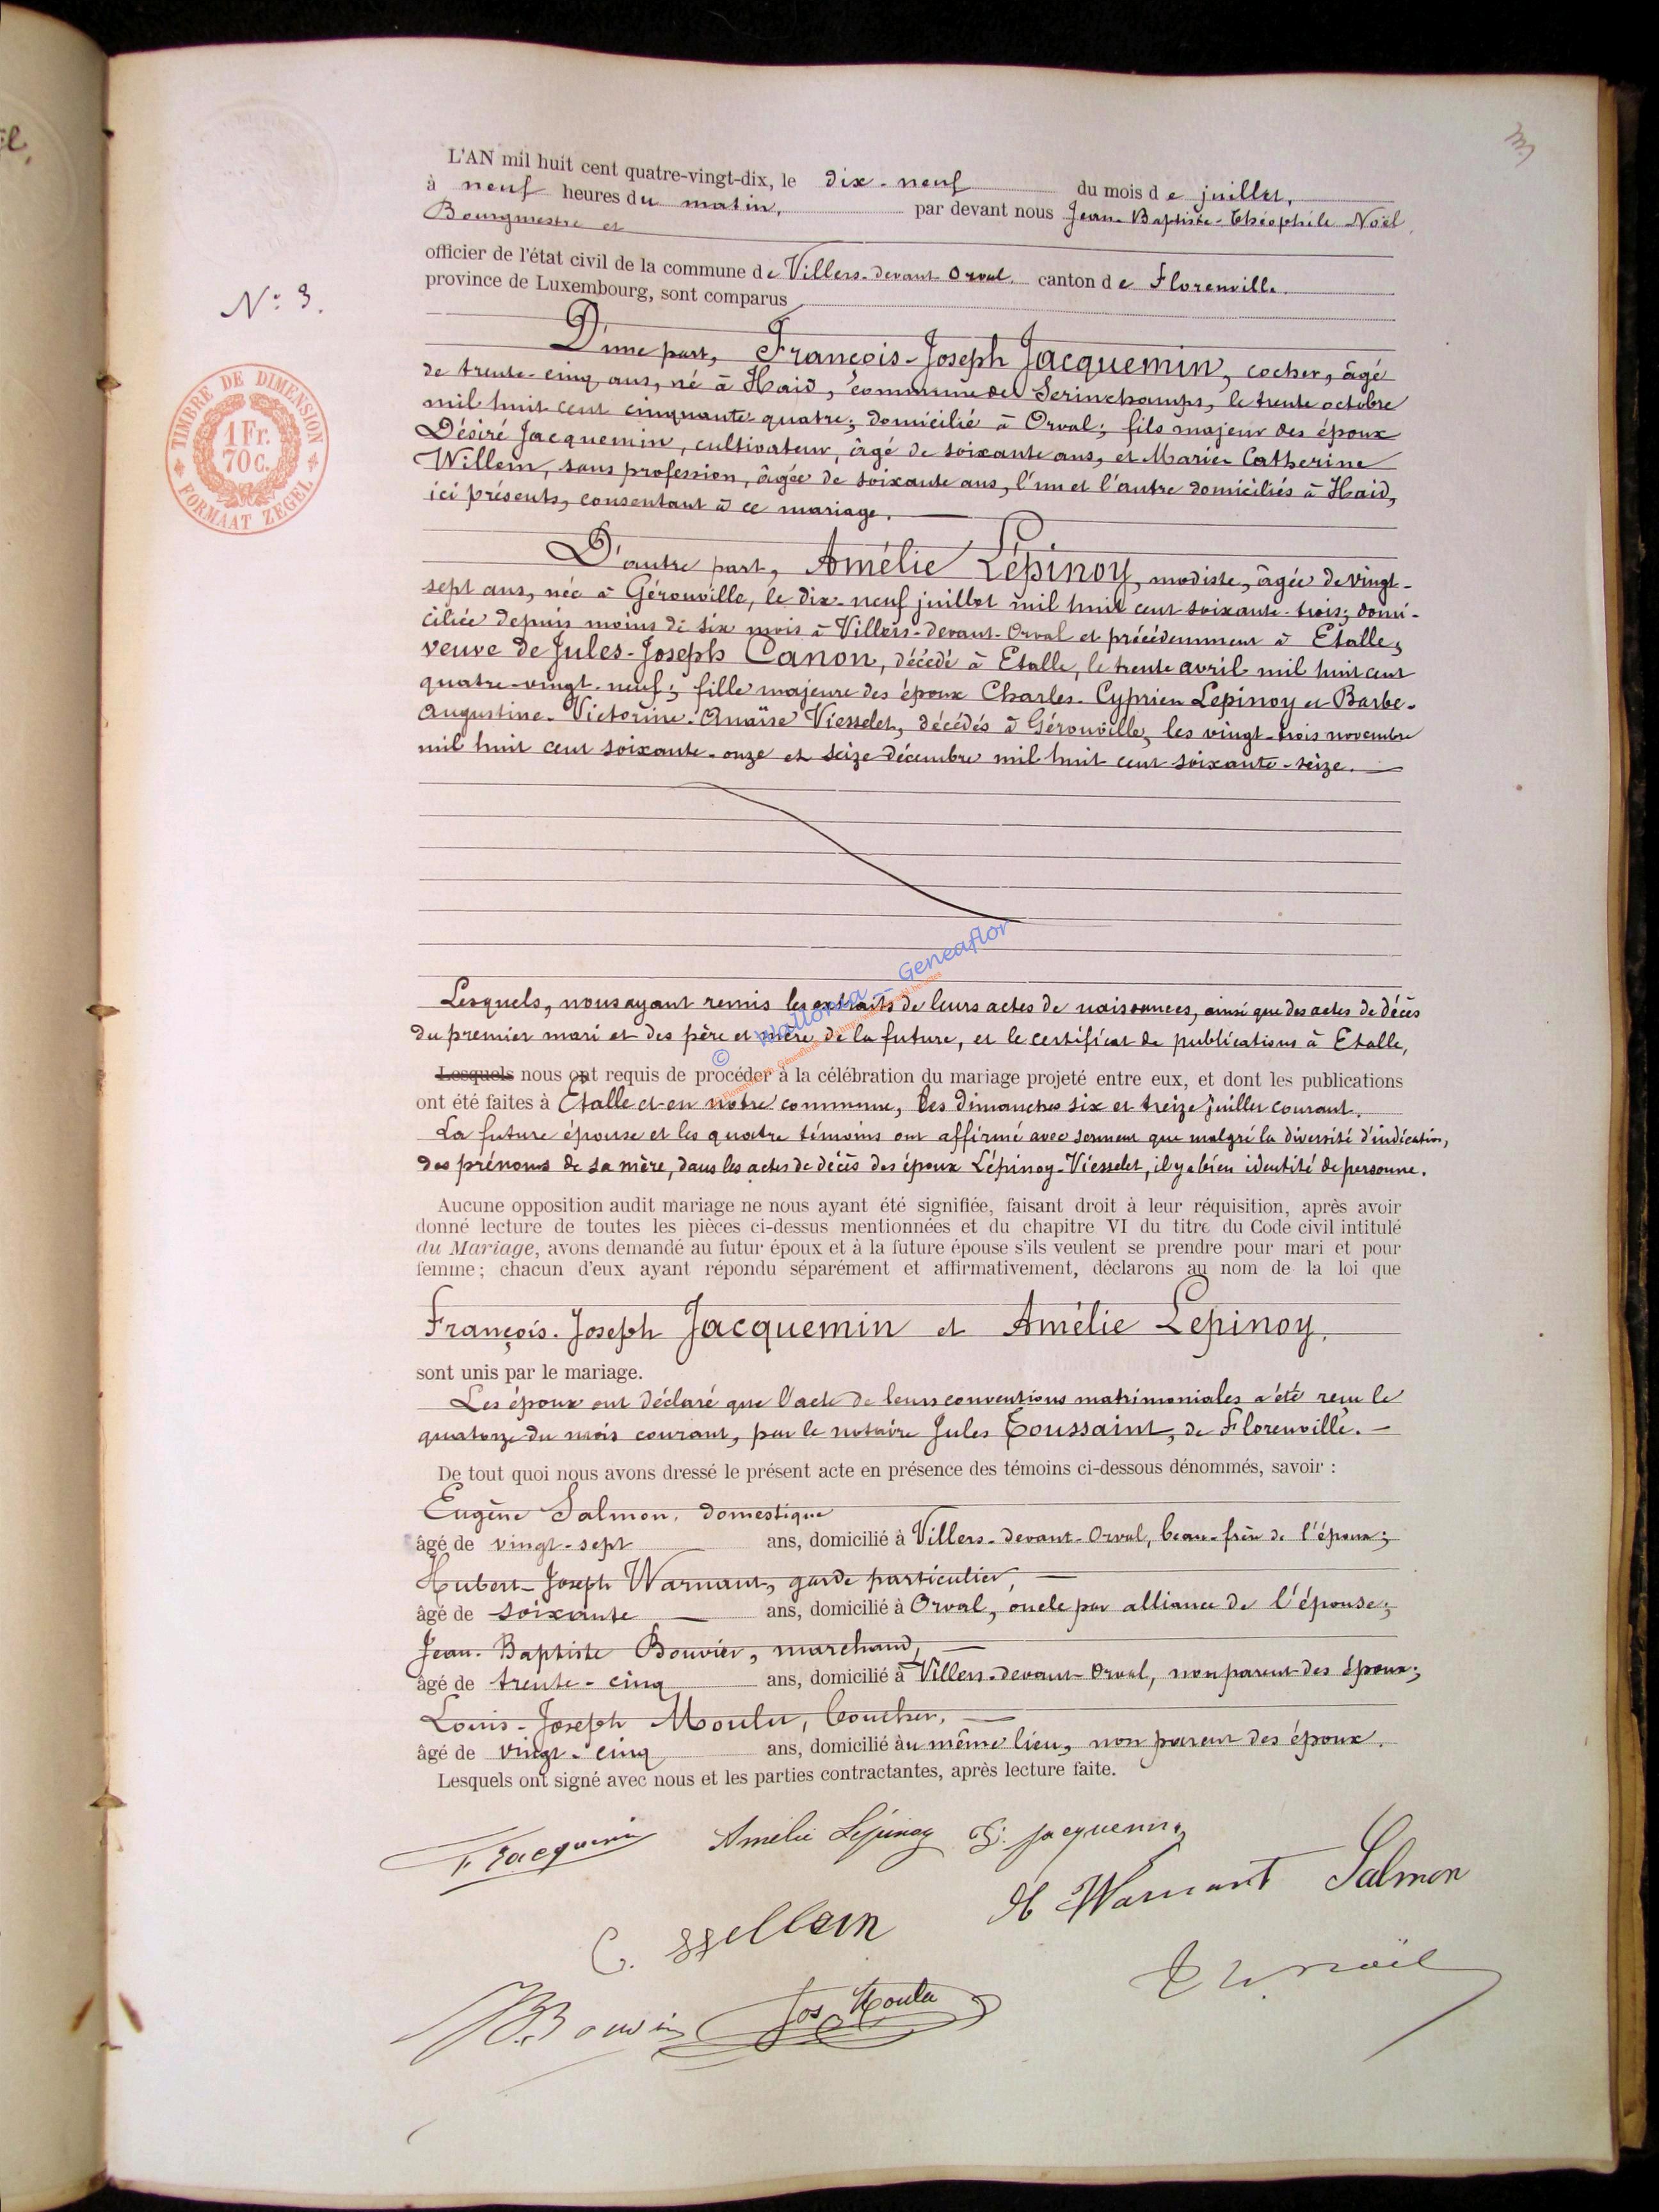 3
L'AN mil huit cent quatre-vingt-dix, le dix-neuf du mois de juillet,
à neuf heures du matin, par devant nous Jean-Baptiste-Théophile Noël,
Bourgmestre et
officier de l'état civil de la commune de Villers-devant-Orval, canton de Florenville
province de Luxembourg, sont comparus
N° 3.
TIMBRE DE DIMENSION
1 Fr.
70 C.
FORMAAT ZEGEL
D'une part, François-Joseph Jacquemin, cocher, âgé
de trente-cinq ans, né à Haid, commune de Serinchamps, le trente octobre
mil huit cent cinquante-quatre; domicilié à Orval; fils majeur des époux
Désiré Jacquemin, cultivateur, âgé de soixante ans, et Marie Catherine
Willem, sans profession, âgée de soixante ans, l'un et l'autre domiciliés à Haid,
ici présents, consentant à ce mariage.
D'autre part, Amélie Lépinoy, modiste, âgée de vingt-
sept ans, née à Gérouville, le dix-neuf juillet mil huit cent soixante-trois; domi-
ciliée depuis moins de six mois à Villers-devant-Orval et précédemment à Etalle,
veuve de Jules-Joseph Canon, décédé à Etalle, le trente avril mil huit cent
quatre-vingt-neuf; fille majeure des époux Charles-Cyprien Lepinoy et Barbe-
Augustine-Victorine-Anaïse Viesselet, décédés à Gérouville, les vingt-trois novembre
mil huit cent soixante-onze et seize décembre mil huit cent soixante-seize.
© Wallonia - Geneaflor
Lesquels, nous ayant remis les extraits de leurs actes de naissances, ainsi que des actes de décès
du premier mari et des père et mère de la future, et le certificat de publications à Etalle,
Lesquels nous ont requis de procéder à la célébration du mariage projeté entre eux, et dont les publications
ont été faites à Etalle et en notre commune, les dimanches six et treize juillet courant.
La future épouse et les quatre témoins ont affirmé avec serment que malgré la diversité d'indication,
des prénoms de sa mère, dans les actes de décès des époux Lépinoy-Viesselet, il y a bien identité de personne.
Aucune opposition audit mariage ne nous ayant été signifiée, faisant droit à leur réquisition, après avoir
donné lecture de toutes les pièces ci-dessus mentionnées et du chapitre VI du titre du Code civil intitulé
du Mariage, avons demandé au futur époux et à la future épouse s'ils veulent se prendre pour mari et pour
femme; chacun d'eux ayant répondu séparément et affirmativement, déclarons au nom de la loi que
François-Joseph Jacquemin et Amélie Lepinoy,
sont unis par le mariage.
Les époux ont déclaré que l'acte de leurs conventions matrimoniales a été reçu le
quatorze du mois courant, par le notaire Jules Toussaint, de Florenville.
De tout quoi nous avons dressé le présent acte en présence des témoins ci-dessous dénommés, savoir :
Eugène Salmon, domestique
âgé de vingt-sept ans, domicilié à Villers-devant-Orval, beau-frère de l'époux;
Hubert-Joseph Warnant, garde particulier,
âgé de soixante ans, domicilié à Orval, oncle par alliance de l'épouse;
Jean-Baptiste Bouvier, marchand,
âgé de trente-cinq ans, domicilié à Villers-devant-Orval, non parent des époux;
Louis-Joseph Moulu, boucher,
âgé de vingt-cinq ans, domicilié au même lieu, non parent des époux.
Lesquels ont signé avec nous et les parties contractantes, après lecture faite.
F Jacquemin Amelie Lépinoy D. jacquemin
C. Willem H Warnant Salmon
JB Bouvier Jos Moulu Noël